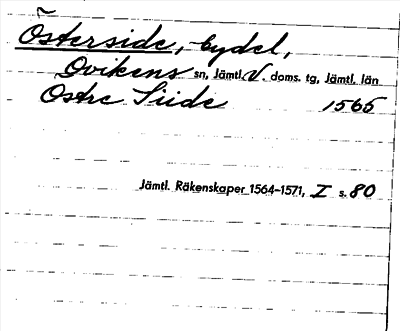 Österside, bydel,
Ovikens sn, Jämtl. V. doms. tg, Jämtl. län
Ostre Siide 1565
Jämtl. Räkenskaper 1564-1571, I s. 80